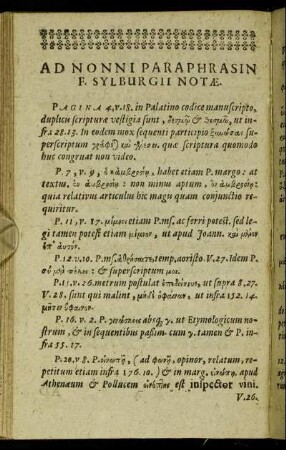 AD NONNI PARAPHRASIN
F. SYLBURGII NOTÆ.
PAGINA 4,v.18. in Palatino codice manuscripto,
duplicis scripturæ vestigia sunt, & ut in-
fra 28.13. In eodem mox sequenti participio su-
perscriptum quæ scriptura quomodo
huc congruat non video.
P. 7, v. 9, habet etiam P. margo: at
textus, non minus aptum,
quia relativus articulus hic magu quam conjunctio re-
quiritur.
P. 11, v. 17. etiam P. ms. ac ferri potest. sed le-
gi tamen potest etiam μίμνον, ut apud Joann. καὶ μένον
ἐπ' αὐτόν.
P. 12.v.10. P. ms. temp, aoristo. V.27. Idem P.
& superscriptum μοι.
P. 15, v. 26. metrum postulat ut supra 8.27.
V. 28. sunt qui malint, ut infra 152. 14.
P. 16. v. 2. absq, γ. ut Etymologicum no-
strum, & in sequentibus paßim. cum γ. tamen & P. in-
fra 55. 17.
P. 20, v 8. P. (ad opinor, relatum, re-
petitum etiam infra 176. 10.) & in marg. apud
Athenæum & Pollucem est inspector vini.
V. 26.